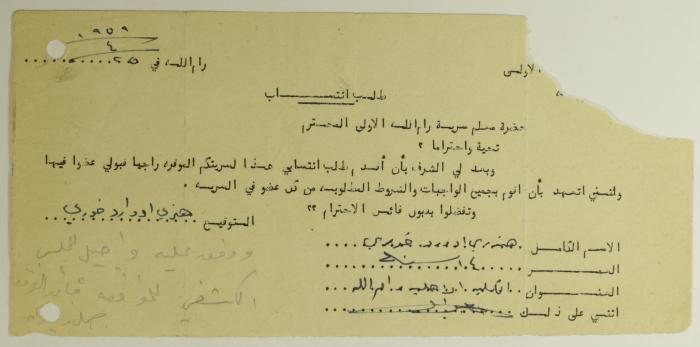 ١٩٥٩
رام الله في ٢٥/٤
الاولى
طلب انتساب
حضرة معلم سرية رام الله الاولى المحترم
تحية واحتراما ؟
وبعد لي الشرف بأن أقدم طلب انتسابي هذا لسريتكم الموقر، راجيا قبولي عضوا فيها
ولنني اتعهد بأن اقوم بجميع الواجبات والشروط المطلوبه، من كل عضو في السريه .
وتفضلوا بقبول فائق الاحترام ؟؟
التوقيع هنري ادوارد خوري
الاسم الكامل . هنري ادورد خوري
العمر ١٤ سنه
العنوان
اثني على ذلك
ووفق عليه واحيل للمجلس
الكشفي للموافقة